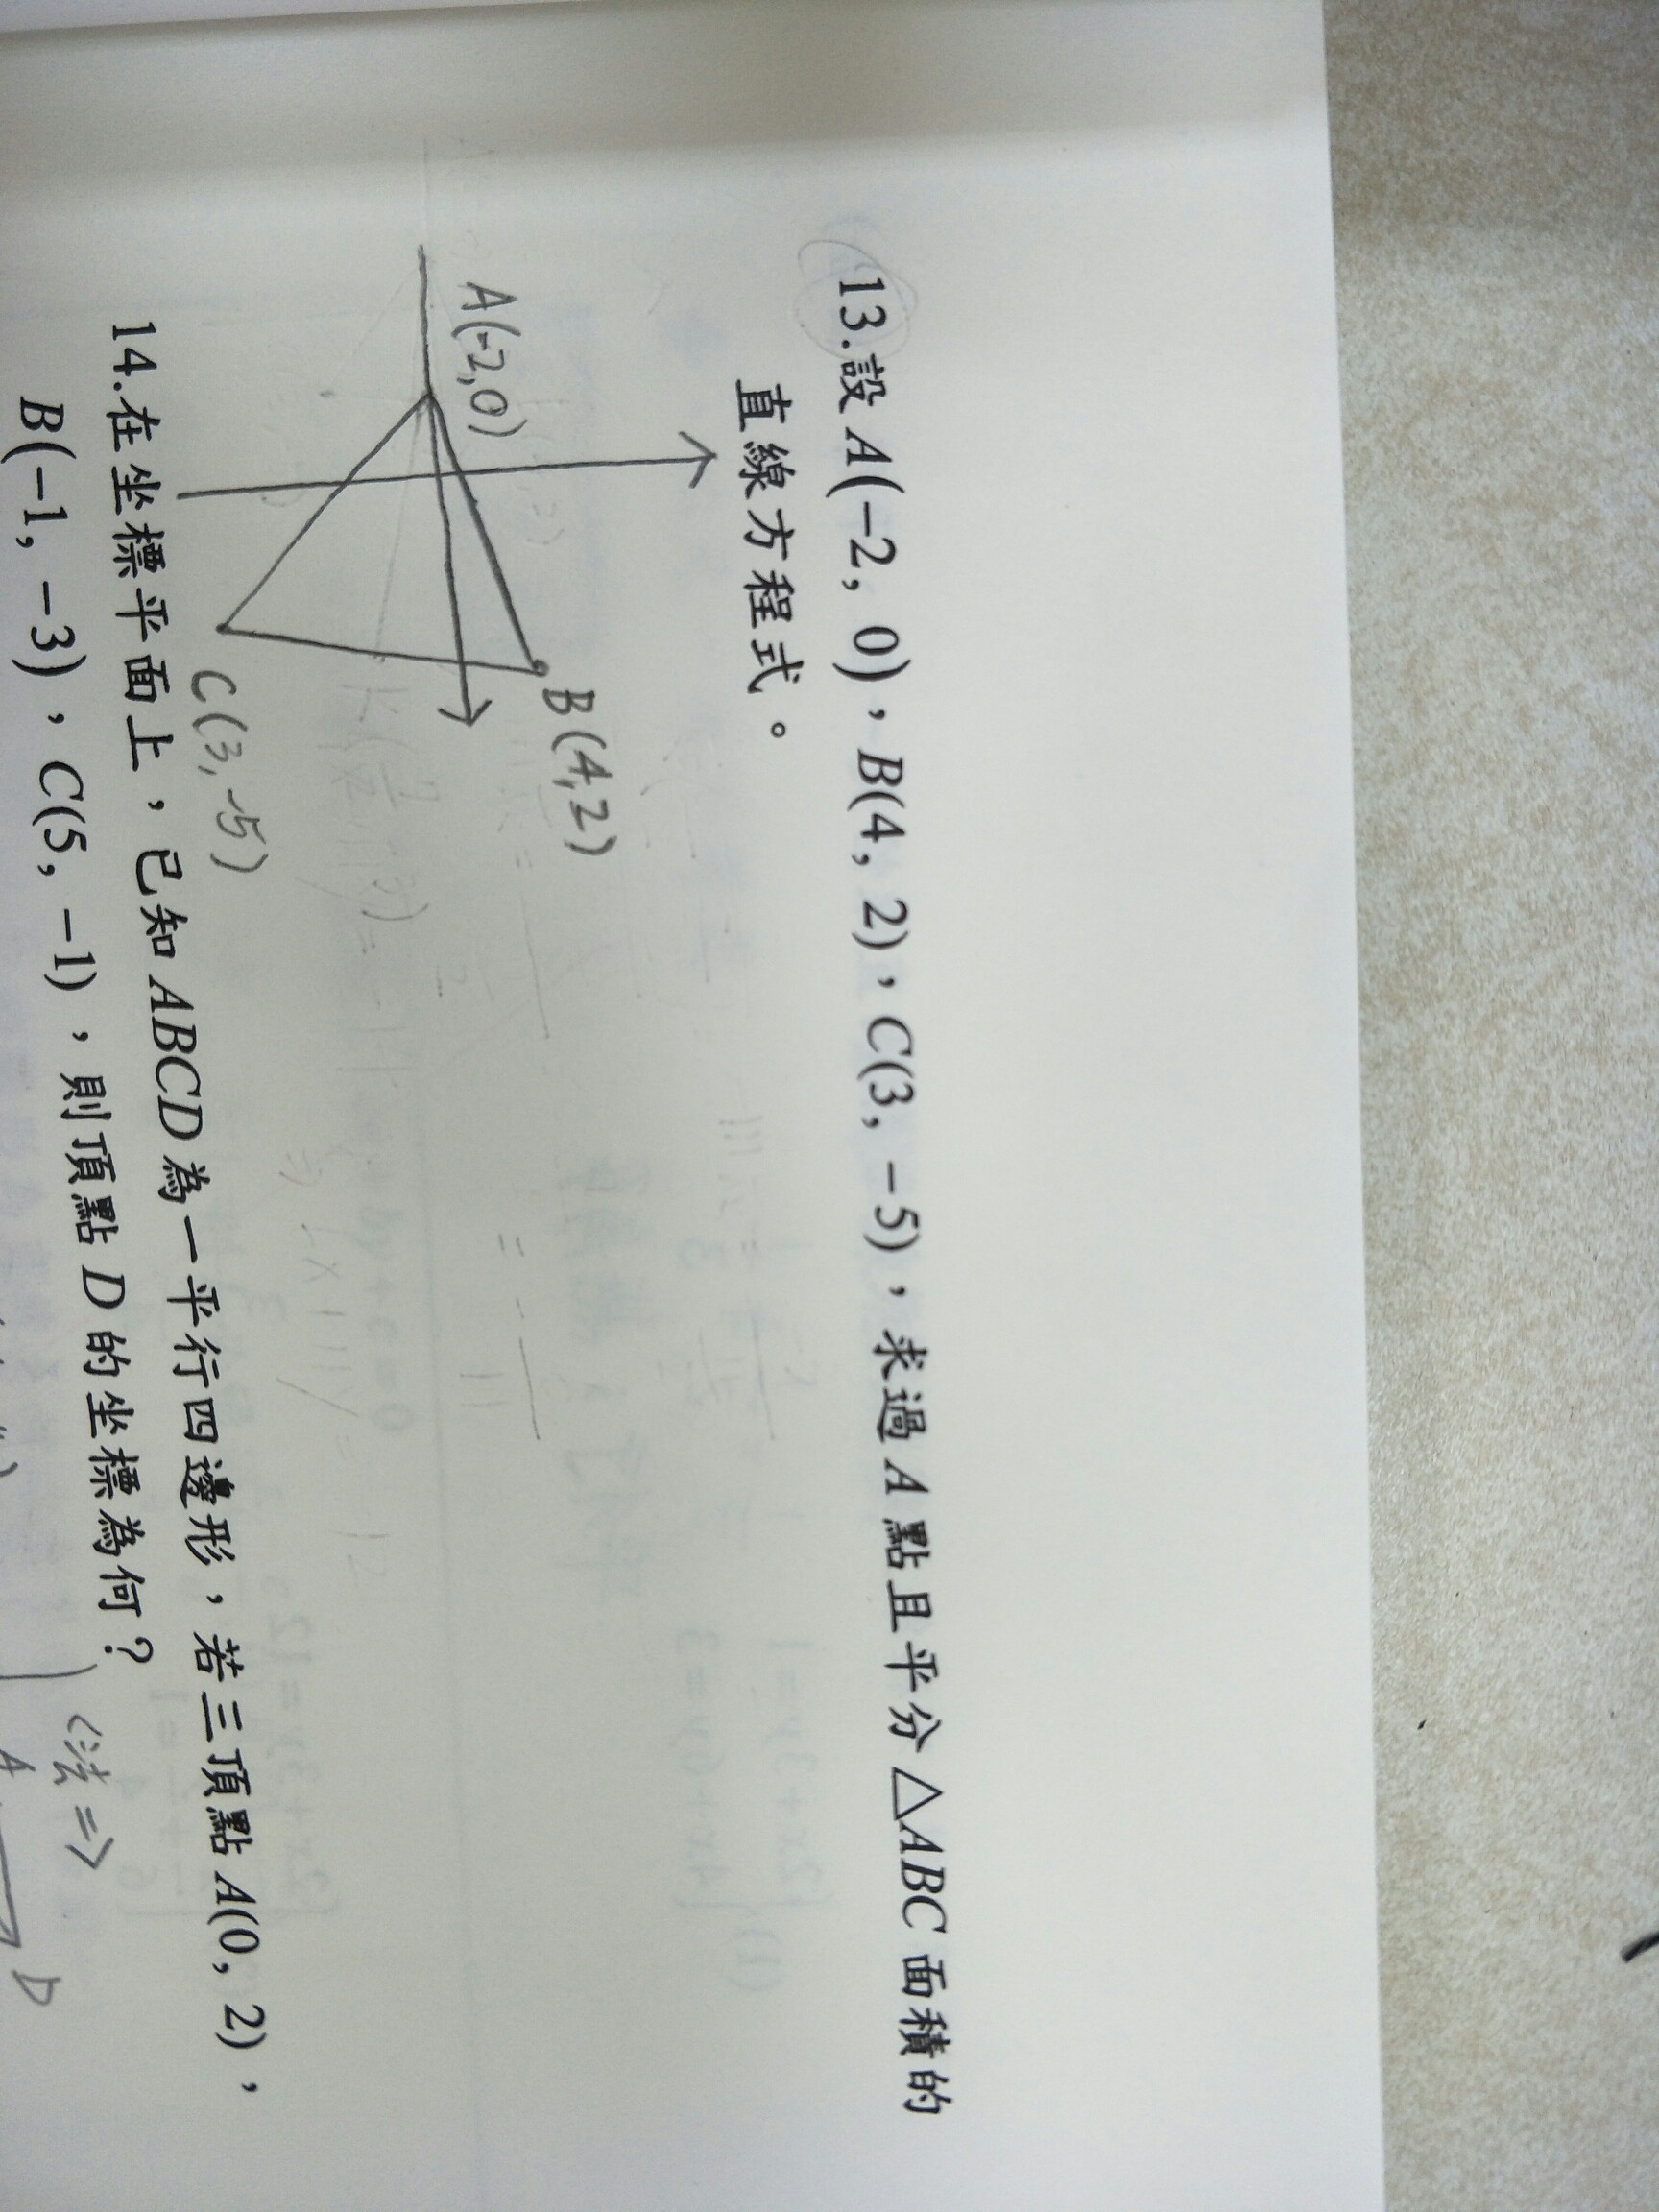 13.設 A(−2, 0),B(4, 2),C(3, −5),求過 A 點且平分 △ABC 面積的
直線方程式。
A(-2,0)
B(4,2)
C(3,-5)
14.在坐標平面上,已知 ABCD 為一平行四邊形,若三頂點 A(0, 2),
B(−1, −3),C(5, −1),則頂點 D 的坐標為何?
<法=>
A
D